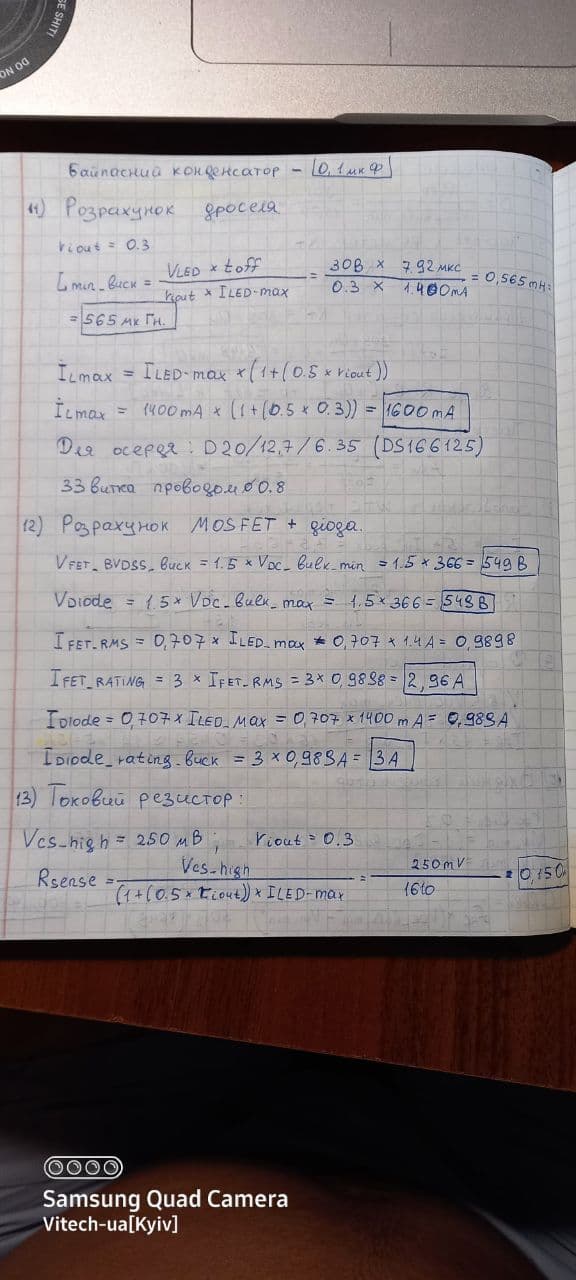 SE SHITI
DO NO
Байпасний конденсатор - 0,1 мк Ф
11) Розрахунок дроселя
riout = 0.3
Lmin_buck = VLED × toff / riout × ILED-max = 30В × 7.92 мкс / 0.3 × 1.400mA = 0,565 mH =
= 565 мк Гн.
iLmax = ILED-max × (1+(0.5 × riout))
iLmax = 1400mA × (1+(0.5 × 0.3)) = 1600mA
Для осердя: D20/12,7/6.35 (DS166125)
33 витка проводом ∅0.8
12) Розрахунок MOSFET + діода.
VFET_BVDSS_buck = 1.5 × VDC_bulk_min = 1.5 × 366 = 549 В
VDIODE = 1.5 × VDC_bulk_max = 1.5 × 366 = 549 В
IFET_RMS = 0,707 × ILED_max = 0,707 × 1.4 A = 0,9898
IFET_RATING = 3 × IFET_RMS = 3 × 0,9898 = 2,96 A
IDIODE = 0,707 × ILED_MAX = 0,707 × 1400 mA = 0,989A
IDIODE_rating_buck = 3 × 0,989A = 3A
13) Токовий резистор:
Vcs_high = 250 мВ; riout = 0.3
Rsense = Vcs_high / (1+(0.5 × riout)) × ILED-max = 250mV / 1610 = 0,150
Samsung Quad Camera
Vitech-ua[Kyiv]